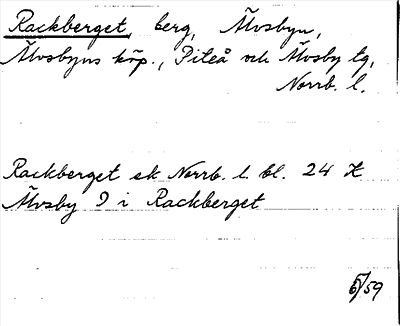 Rackberget, berg, Älvsbyn,
Älvsbyns köp., Piteå och Älvsby tg,
Norrb. l.
Rackberget ek Norrb. l. bl. 24 H
Älvsby 9 i Rackberget
6/59